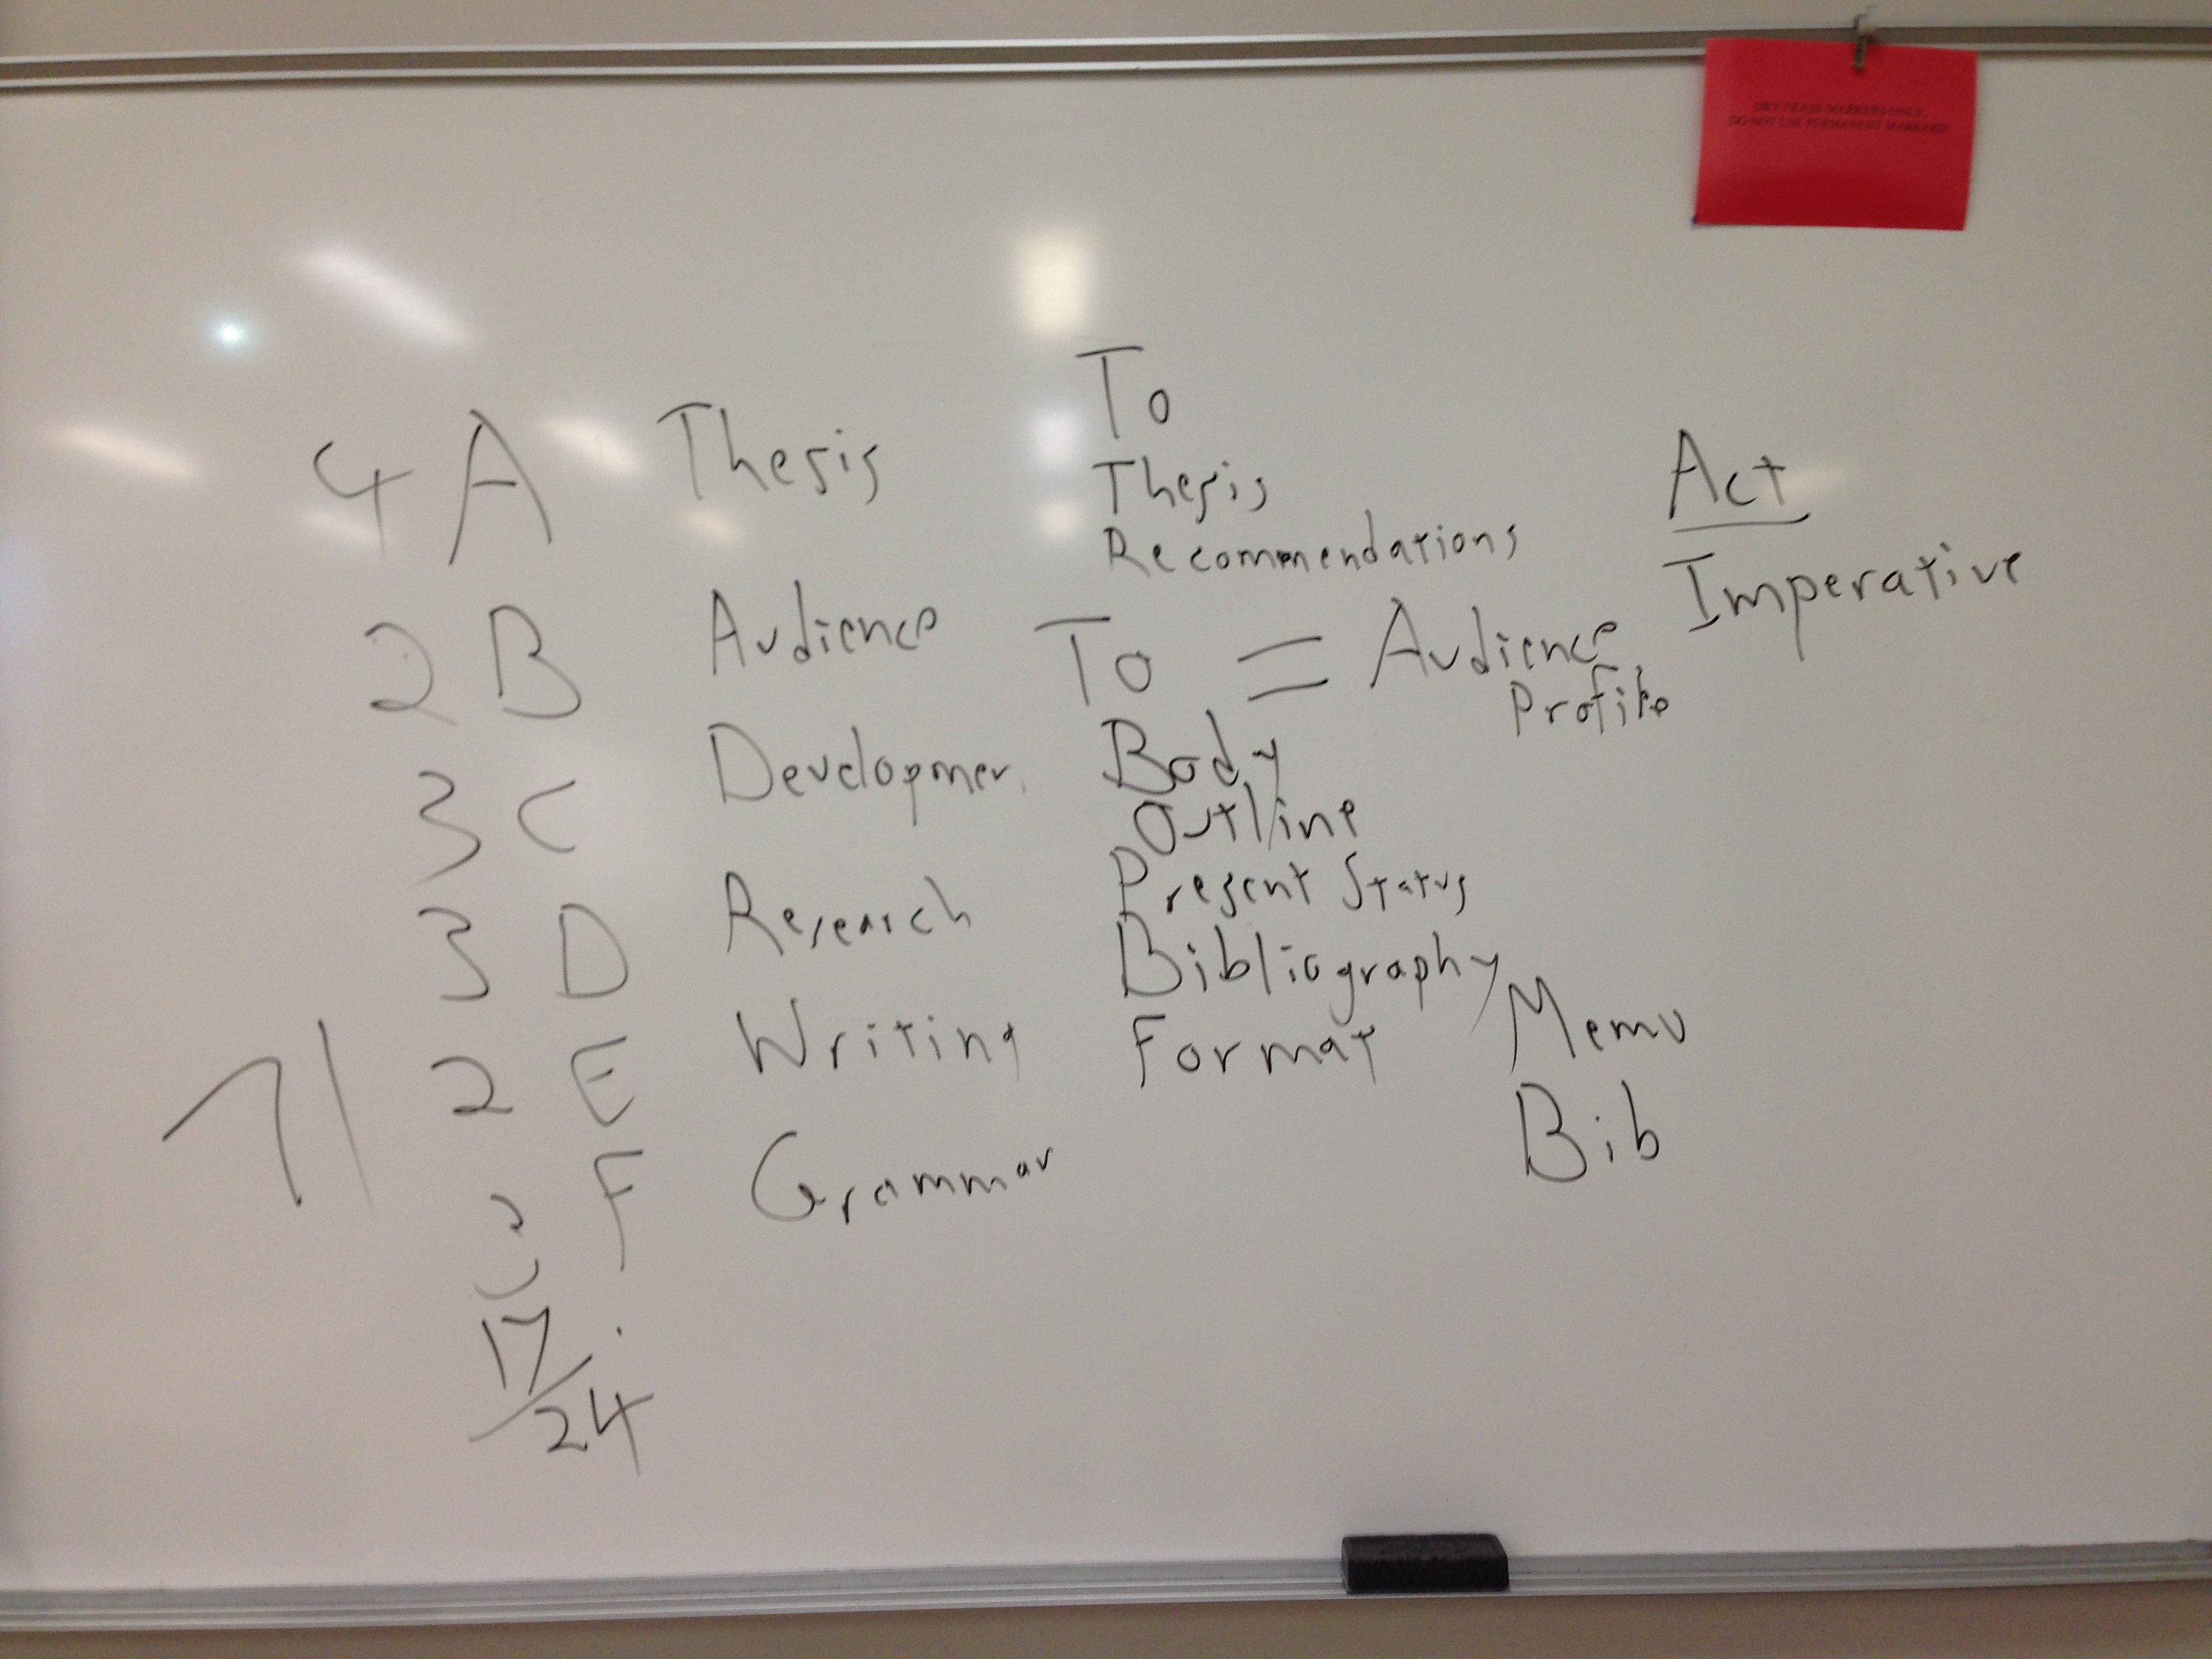 DRY ERASE MARKERS ONLY.
DO NOT USE PERMANENT MARKERS!
To
4 A Thesis Thesis Act
Recommendations Imperative
2 B Audience To = Audience
Profile
3 C Developmen Body
Outline
Present Status
3 D Research Bibliography
71 2 E Writing Format Memo
Bib
F Grammar
17/24